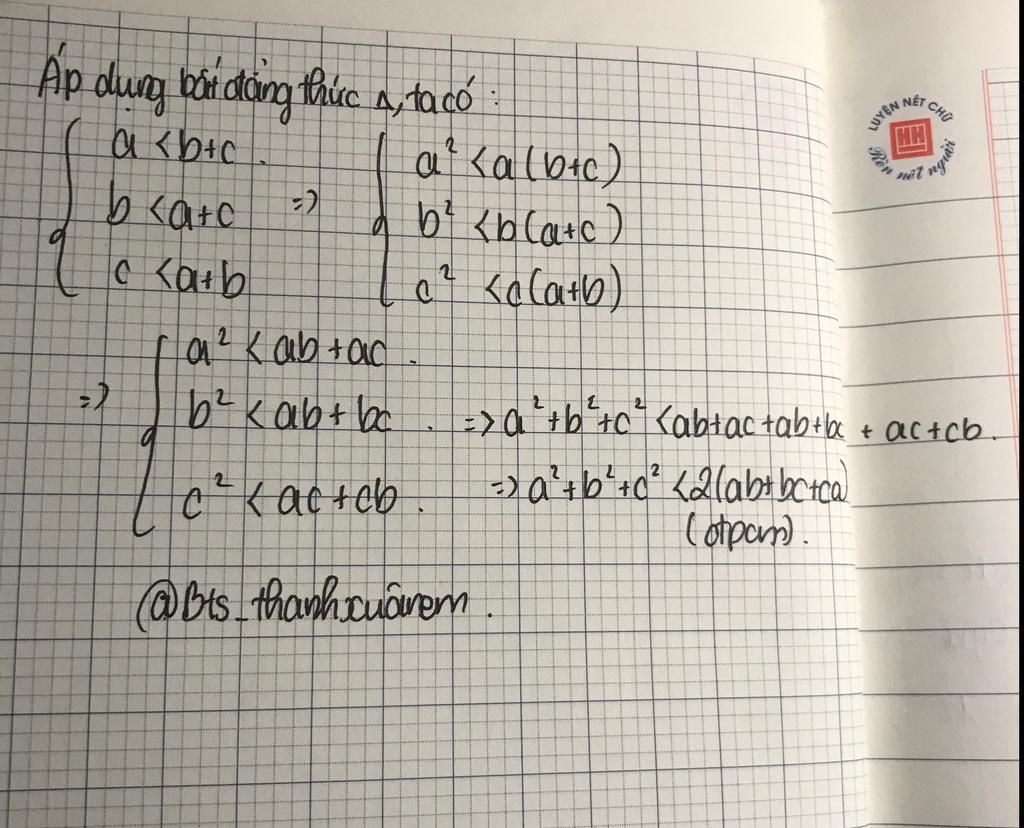 Áp dụng bất đẳng thức Δ, ta có :
a < b+c .
b < a+c => 
c < a+b
a² < a(b+c)
b² < b(a+c)
c² < c(a+b)
=> a² < ab + ac .
b² < ab + bc . => a² + b² + c² < ab+ac+ab+bc + ac+cb .
c² < ac + cb . => a² + b² + c² < 2(ab+bc+ca)
(đpcm) .
@Bts_thanhxuânem .
LUYỆN NÉT CHỮ
HH
Rèn nết người